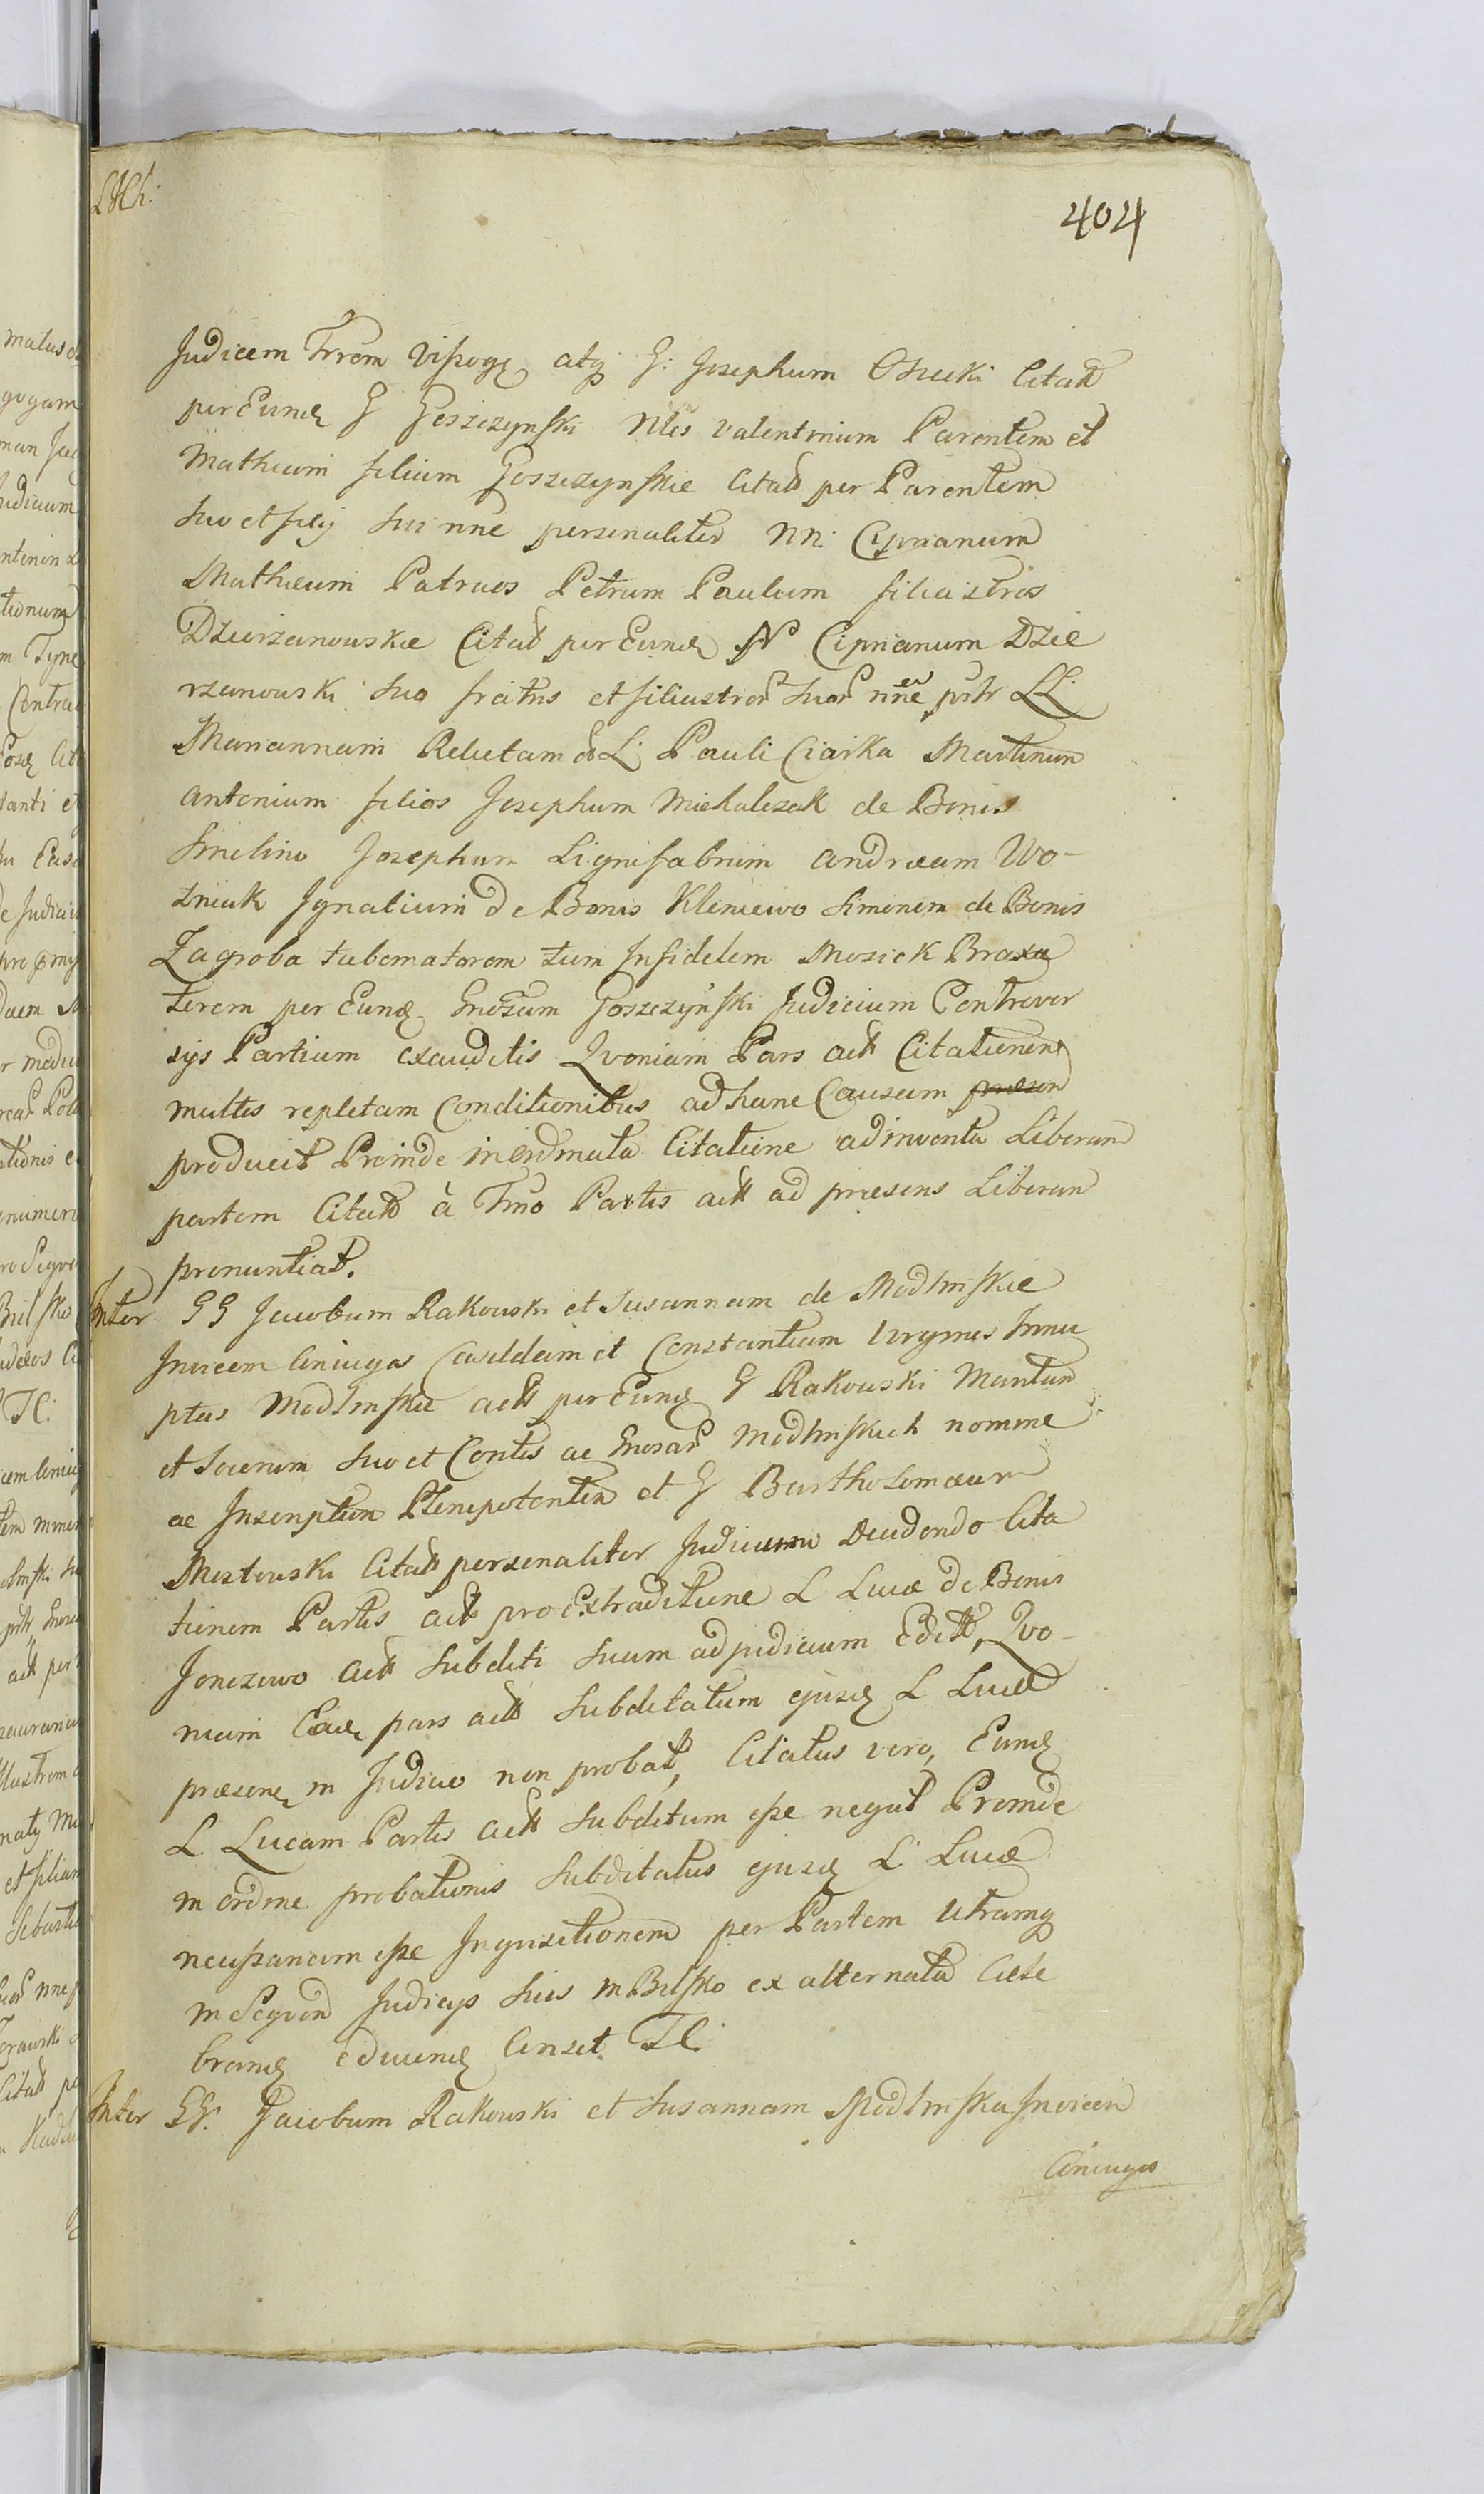 404
Judicem Trrem Vissogę atq G: Josephum Osiecki Citatt
per Eundę G Goszczynski Nlis Valentinum Parentem et
Mathæum filium Goszczynskie Citatt per Parentem
Suo et filij Sui nne personaliter NN: Ciprianum
Mathæum Patruos Petrum Paulum filiastros
Dzierżanowskie Citatt per Eundę N Ciprianum Dzie
rzanowski Suo fratris et filiastror Suor nne prtr LL
Mariannam Relictam L: Pauli Ciarka Martinum
Antonium filios Josephum Michalczak de Bonis
Smolino Josephum Lignifabrum Andræam Wo-
zniak Ignatium de Bonis Kleniewo Simonem de Bonis
Zagroba tabernatorem tum Infidelem Mosiek Braxa
torem per Eundę Gnosum Goszczynski Judicium Controver
sijs Partium exauditis Qvoniam Pars actt Citationem
multis repletam Conditionibus ad hanc Causam præsen
producit Proinde inordinata Citatione adinventa Liberam
partem Citatt à Tmo Partis actt ad præsens Liberam
pronuntiat.
Inter GG Jacobum Rakowski et Susannam de Modlinskie
Invicem Coniuges Casildam et Constantiam Virgines Innu
ptas Modlinskie actt per Eundę G Rakowski Maritum
et Sororium Suo et Contis ac Gnosar Modlinskich nomine
ac Inscriptum Plenipotentem et G Bartholomæum
Mostowski Citatt personaliter Judicium Decidendo Cita
tionem Partis actt pro Extraditione L Lucæ de Bonis
Jonczewo actt Subditi Suum ad judicium Editt, Qvo-
niam Eadę pars actt Subditatum ejusdę L Lucæ
præsenę in Judicio non probat, Citatus vero, Eundę
L. Lucam Partis actt Subditum esse negat Proinde
in ordine probationis Subditatus ejusdę L Lucæ
necessariam esse Inqvisitionem per Partem Utramq
in Seqven Judicijs Suis in Bielsko ex alternata Cele
brandę educendę Censet TC:
Inter GG: Jacobum Rakowski et Susannam Modlinska Invicem
Coniuges